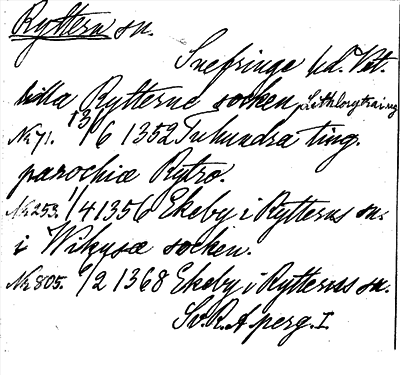 Ryttern sn.
Snefringe hd. Vst.
lilla Rytterne socken
No 71. 13/6 1352 Tuhundra ting.
parochiæ Rytro.
No 253. 1/4 1356 Ekeby i Rytterns sn.
i Wikysæ socken.
No 805. 6/2 1368 Ekeby i Rytterns sn.
Sv. R. A perg. I.